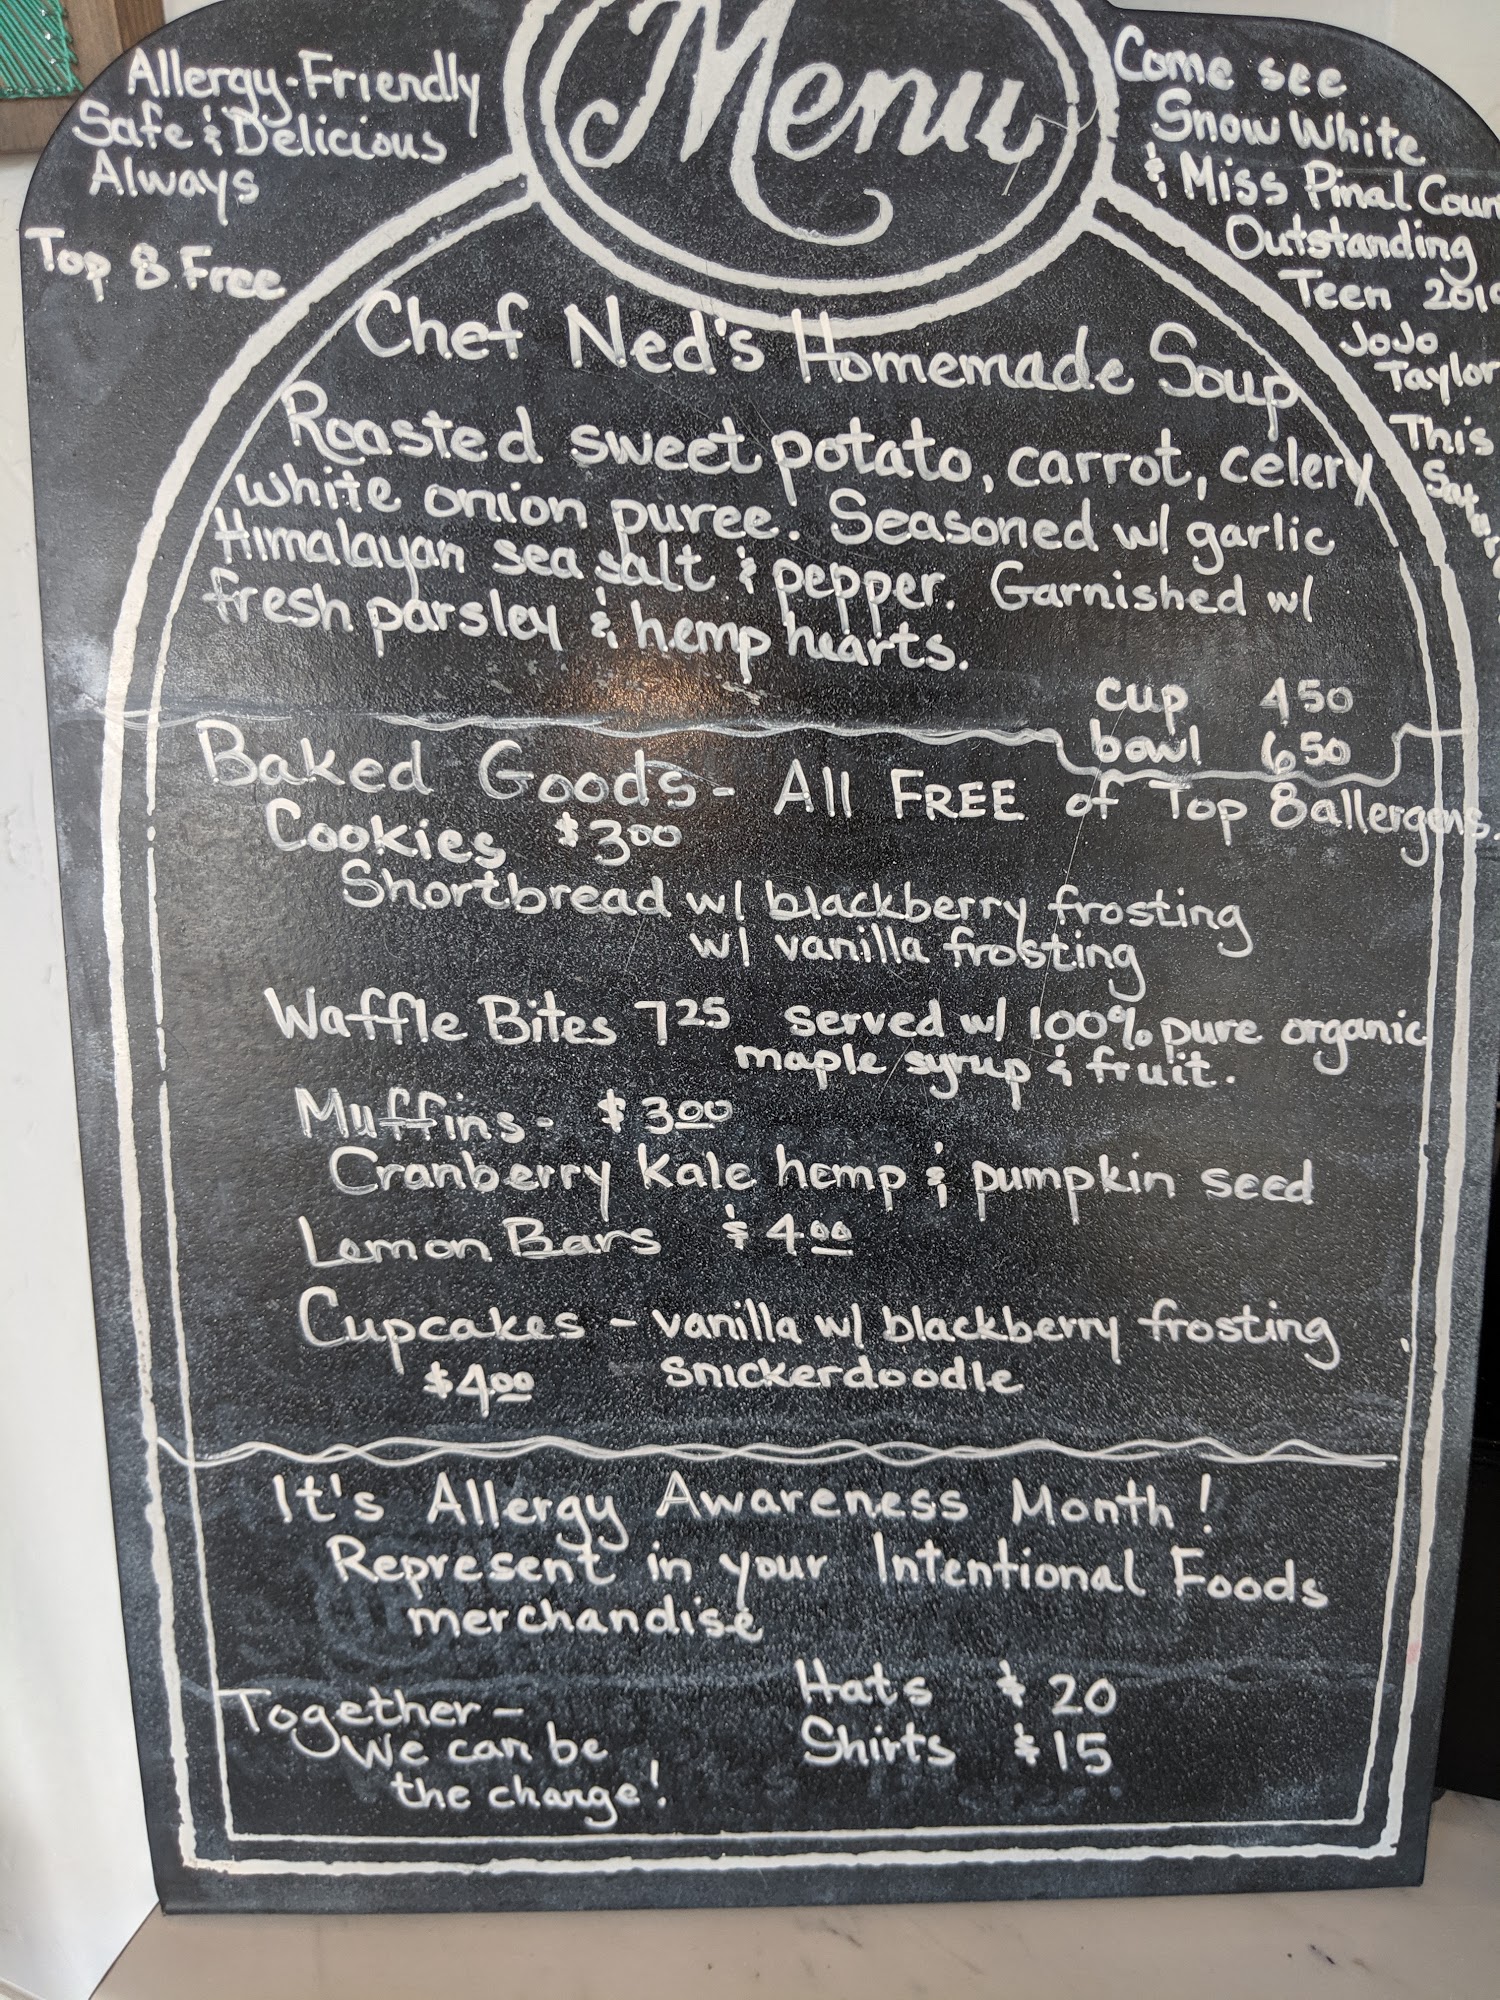 Menu
Allergy-Friendly
Safe & Delicious
Always
Top 8 Free
Come see
Snow White
& Miss Pinal
Outstanding
Teen
JoJo
Taylor
This
Chef Ned's Homemade Soup
Roasted sweet potato, carrot, celery
white onion puree. Seasoned w/ garlic
Himalayan sea salt & pepper. Garnished w/
fresh parsley & hemp hearts.
cup 450
bowl 650
Baked Goods - All FREE of Top 8 allergens.
Cookies $3.00
Shortbread w/ blackberry frosting
w/ vanilla frosting
Waffle Bites 725 served w/ 100% pure organic
maple syrup & fruit.
Muffins - $3.00
Cranberry kale hemp & pumpkin seed
Lemon Bars $4.00
Cupcakes - vanilla w/ blackberry frosting
$4.00 snickerdoodle
It's Allergy Awareness Month!
Represent in your Intentional Foods
merchandise
Together -
We can be
the change!
Hats $20
Shirts $15